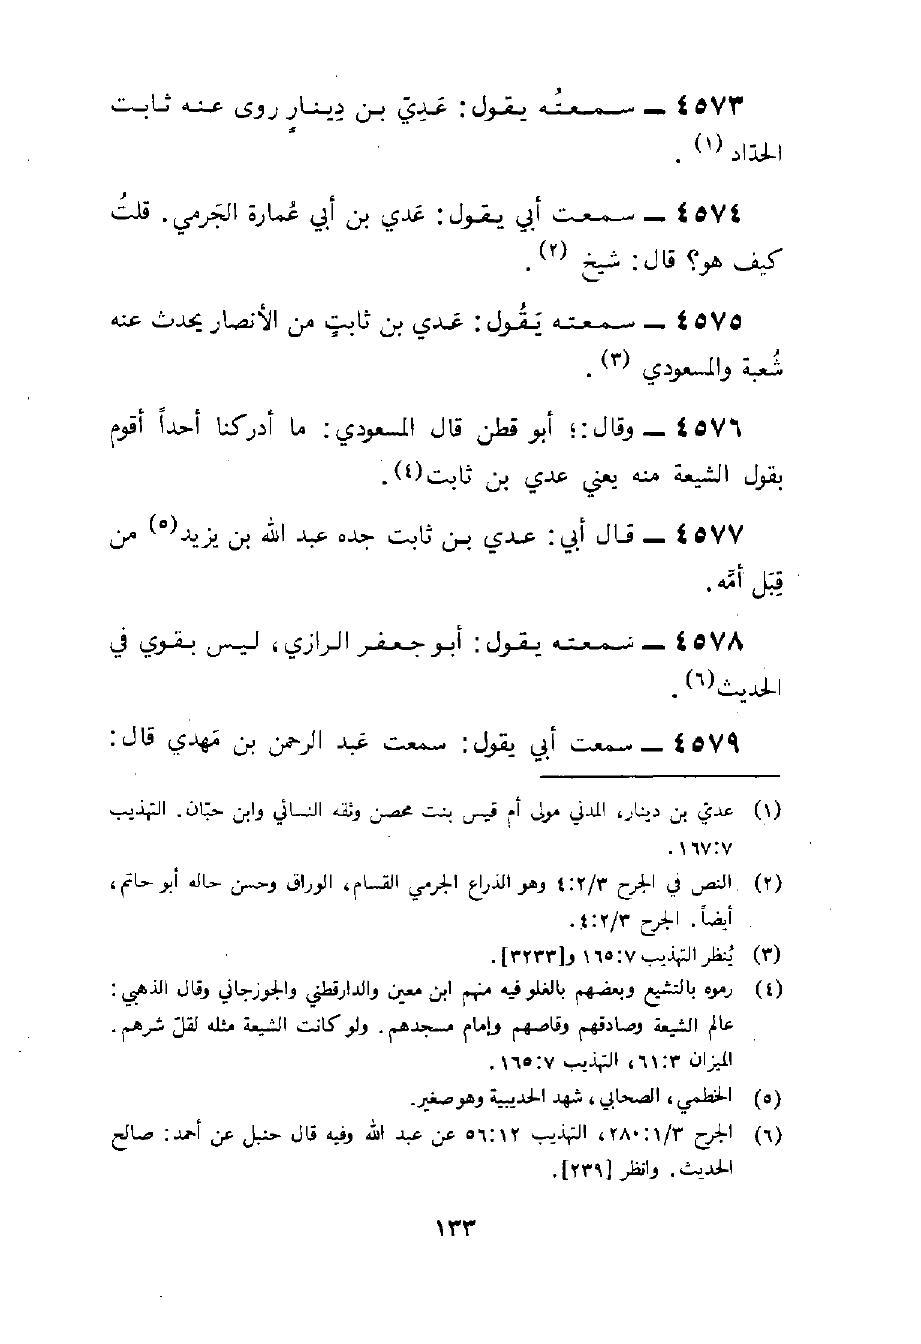 ٤٥٧٣ ــ سـمـعتُه يـقـول: عَـدِيّ بـن دِينـارٍ روى عنـه ثـابـت
الحدّاد (١) .
٤٥٧٤ ــ سـمـعـت أبي يـقـول: عَدي بن أبي عُمارة الجَرمي. قلتُ
كيف هو؟ قال: شيخ (٢) .
٤٥٧٥ ــ سـمـعتـه يَقُـول: عَدي بن ثابتٍ من الأنصار يحدث عنه
شُعبة والمسعودي (٣) .
٤٥٧٦ ــ وقال:؛ أبو قطن قال المسعودي: ما أدركنا أحداً أقوم
بقول الشيعة منه يعني عدي بن ثابت(٤).
٤٥٧٧ ــ قـال أبي: عـدي بـن ثابت جده عبد الله بن يزيد(٥) من
قِبَل أمَّه.
٤٥٧٨ ــ سـمعتـه يـقـول: أبـو جـعـفـر الـرازي، ليـس بـقـوي في
الحديث(٦) .
٤٥٧٩ ــ سمعت أبي يقول: سمعت عَبد الرحمن بن مَهدي قال:
(١) عديّ بن دينار، المدني مولى أم قيس بنت محصن وثقه النسائي وابن حبّان. التهذيب
١٦٧:٧.
(٢) النص في الجرح ٤:٢/٣ وهو الذراع الجرمي القسام، الوراق وحسن حاله أبو حاتم،
أيضاً. الجرح ٤:٢/٣.
(٣) يُنظر التهذيب ١٦٥:٧ و[٣٢٣٣].
(٤) رموه بالتشيع وبعضهم بالغلو فيه منهم ابن معين والدارقطني والجوزجاني وقال الذهبي:
عالم الشيعة وصادقهم وقاصهم وإمام مسجدهم. ولو كانت الشيعة مثله لقلّ شرهم.
الميزان ٦١:٣، التهذيب ١٦٥:٧.
(٥) الخطمي، الصحابي، شهد الحديبية وهو صغير.
(٦) الجرح ٢٨٠:١/٣، التهذيب ٥٦:١٢ عن عبد الله وفيه قال حنبل عن أحمد: صالح
الحديث. وانظر [٢٣٩].
١٣٣